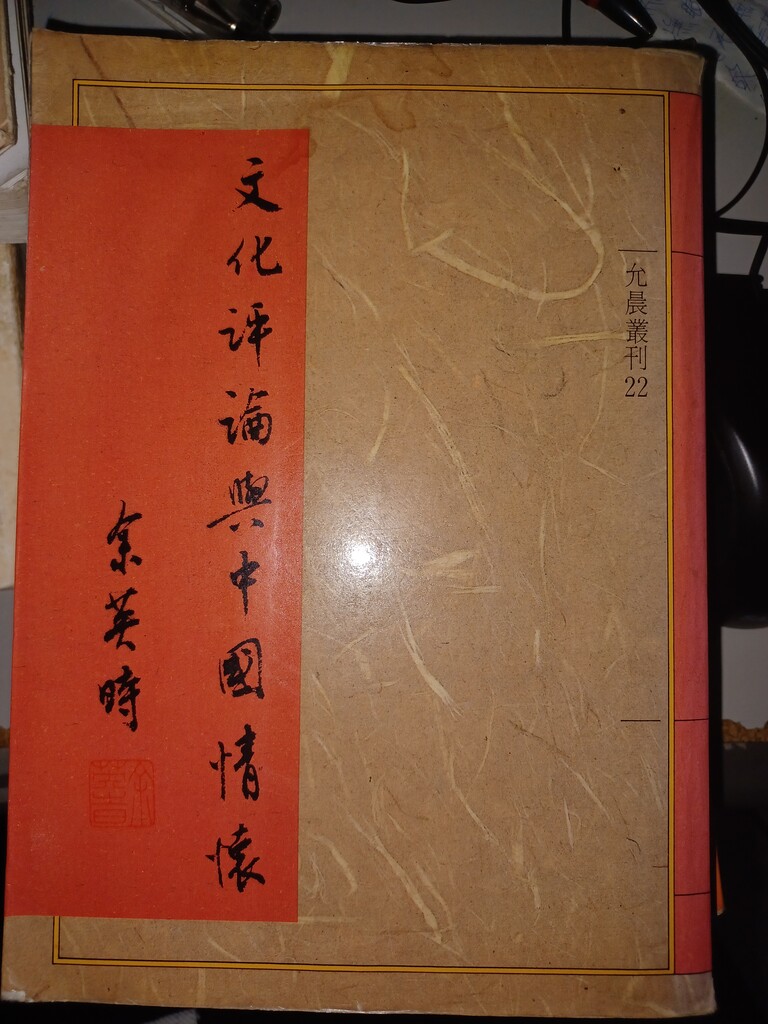 允晨叢刊22
文化評論與中國情懷
余英時